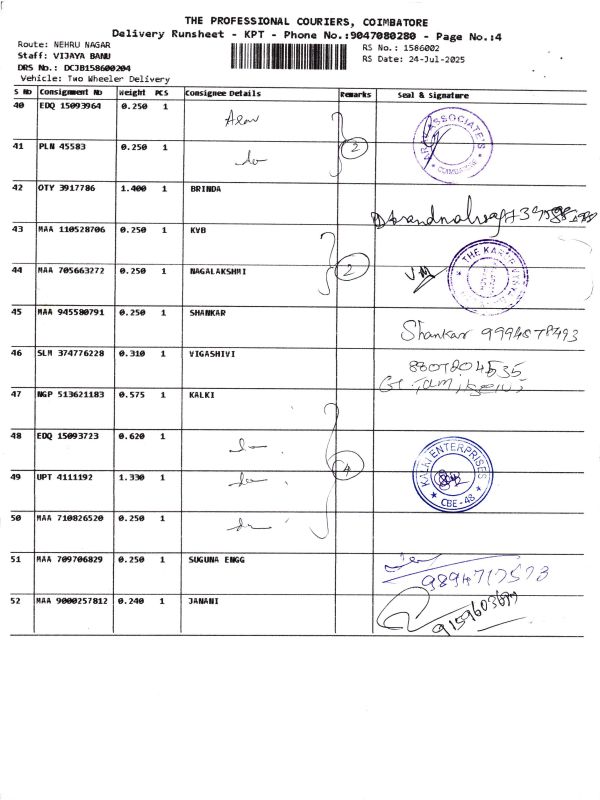 THE PROFESSIONAL COURIERS, COIMBATORE
Delivery Runsheet - KPT - Phone No.:9047080280 - Page No.:4
Route: NEHRU NAGAR
Staff: VIJAYA BANU
DRS No.: DCJB158600204
Vehicle: Two Wheeler Delivery
RS No.: 1586002
RS Date: 24-Jul-2025
S No Consignment No Weight PCS Consignee Details Remarks Seal & Signature
40 EDQ 15093964 0.250 1
ASSOCIATE'S
COIMBATORE
41 PLN 45583 0.250 1 do 2
42 OTY 3917786 1.400 1 BRINDA
43 MAA 110528706 0.250 1 KVB
44 MAA 705663272 0.250 1 NAGALAKSHMI 2
THE
45 MAA 945580791 0.250 1 SHANKAR Shankar 9994578493
46 SLM 374776228 0.310 1 VIGASHIVI 8807804535
47 NGP 513621183 0.575 1 KALKI
48 EDQ 15093723 0.620 1 do 4
KALKI ENTERPRISES
CBE-48
49 UPT 4111192 1.330 1 do
50 MAA 710826520 0.250 1 do
51 MAA 709706829 0.250 1 SUGUNA ENGG
52 MAA 9000257812 0.240 1 JANANI